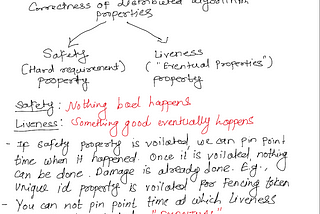 Correctness of distributed algorithm
properties
Safety
(Hard requirement)
property
Liveness
("Eventual Properties")
property
Safety: Nothing bad happens
Liveness: Something good eventually happens
- If safety property is voilated we can pin point
time when it happened. Once it is voilated, nothing
can be done. Damage is already done. E.g.,
Unique id property is voilated for Fencing token
- You can not pin point time at which Liveness